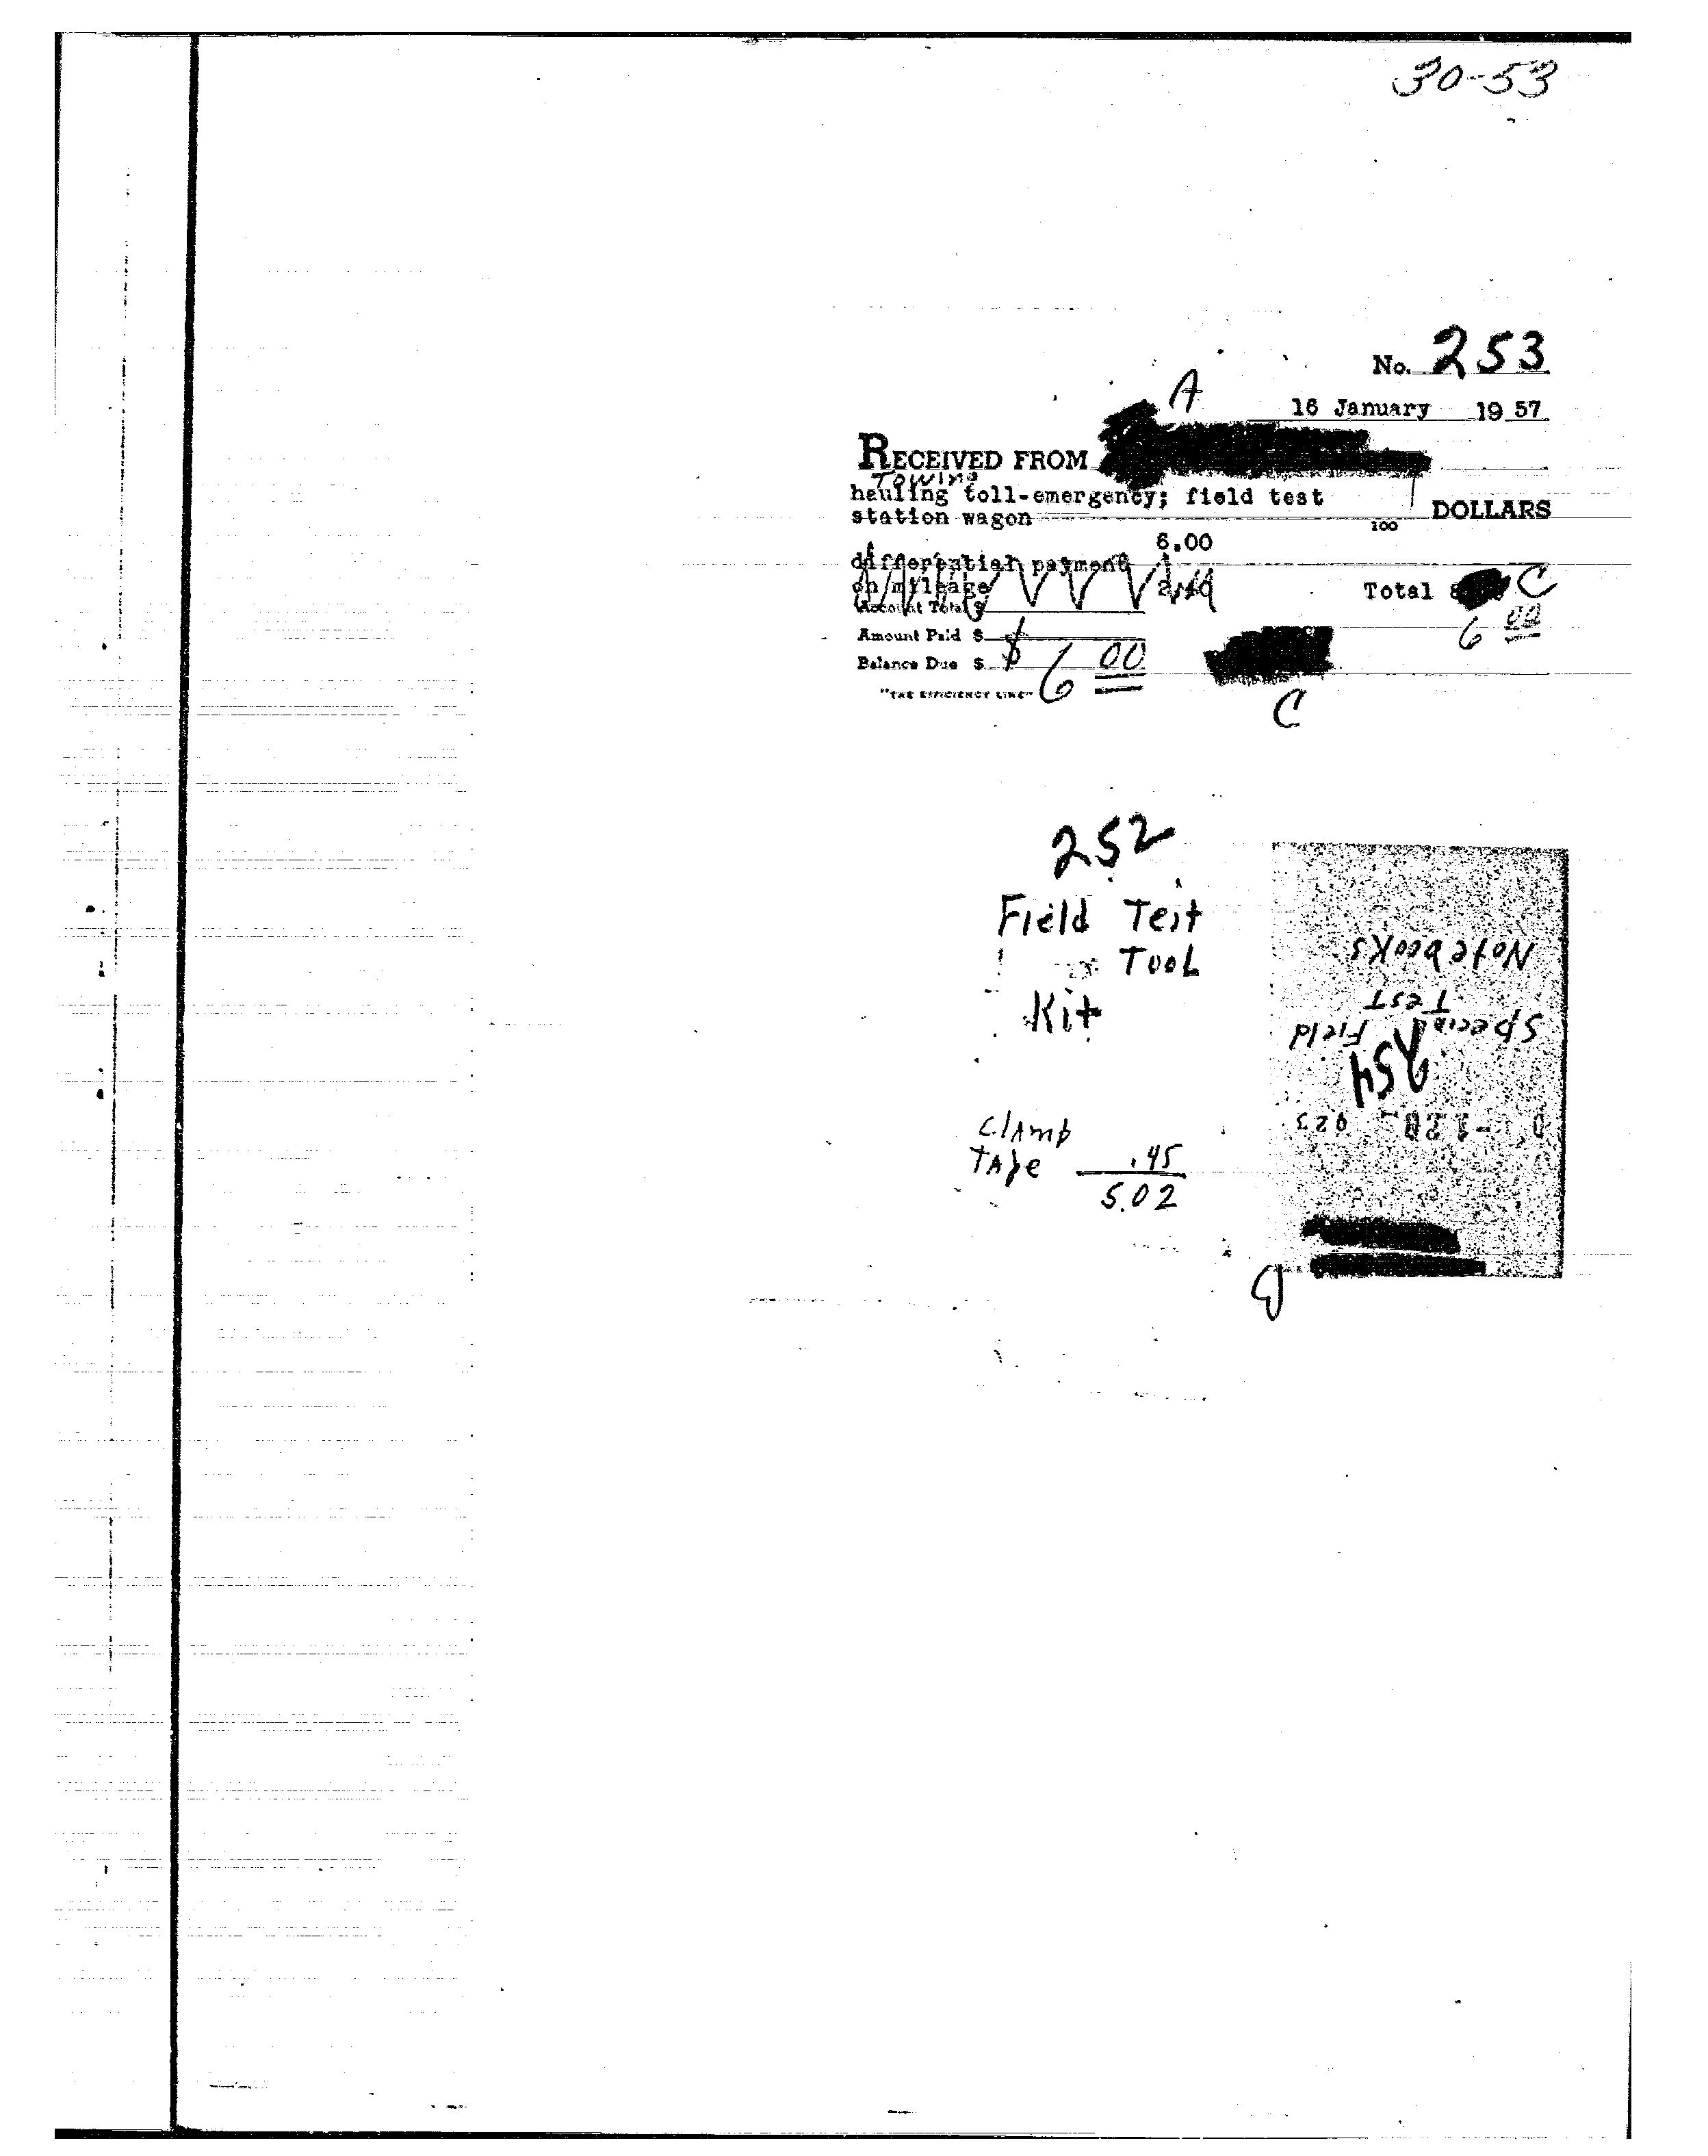 30-53
No. 253
A
16 January 19 57
RECEIVED FROM
Towing
hauling toll-emergency; field test
station wagon
100 DOLLARS
6.00
differential payment
on mileage
Total $ C
6 00
Account Total $
Amount Paid $
Balance Due $
$ 6 00
"THE EFFICIENCY LINE"
C
252
Field Test
Tool
Kit
Clamp
Tape .45
5.02
254
Special Field
Test
Notebooks